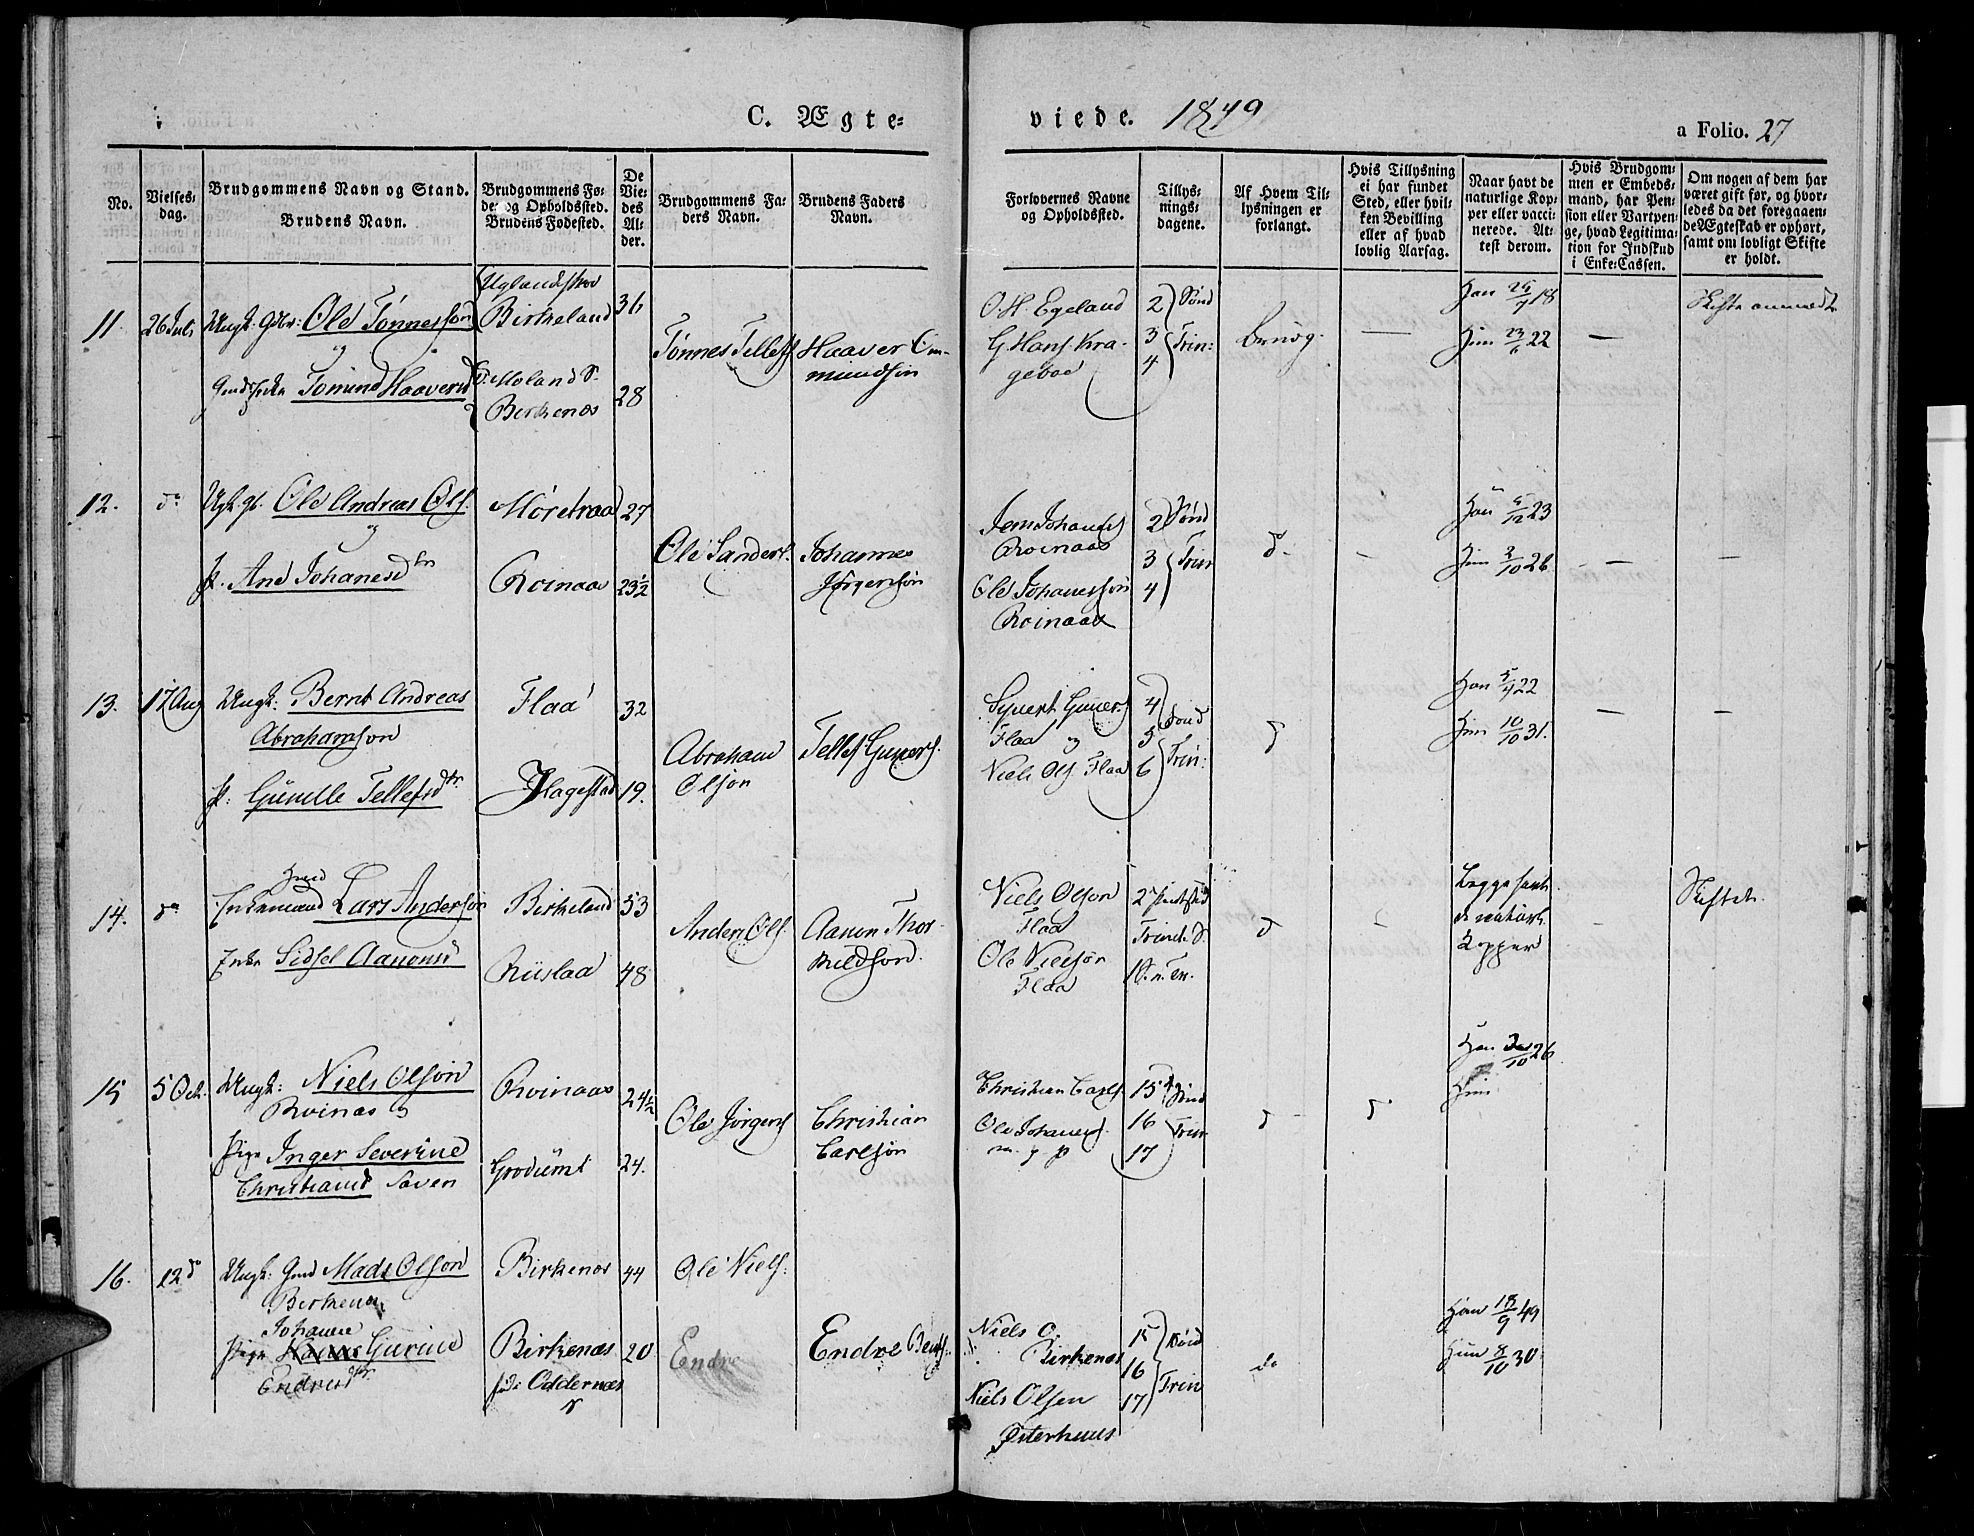 C. Ægte=
viede. 1849
a Folio. 27
No.
Vielses=
dag.
Brudgommens Navn og Stand.
Brudens Navn.
Brudgommens Fø=
de= og Opholdssted.
Brudens Fødested.
De
Vie=
des
Al=
der.
Brudgommens Fa=
ders Navn.
Brudens Faders
Navn.
Forlovernes Navne
og Opholdssted.
Tillys=
nings=
dagene.
Af Hvem Til=
lysningen er
forlangt.
Hvis Tillysning
ei har fundet
Sted, eller hvil=
ken Bevilling
eller af hvad
lovlig Aarsag.
Naar havt de
naturlige Kop=
per eller vacci=
nerede. At=
test derom.
Hvis Brudgom=
men er Embeds=
mand, har Pen=
sion eller Vartpen=
ge, hvad Legitima=
tion for Indskud
i Enke=Cassen.
Om nogen af dem har
været gift før, og hvor=
ledes da det foregaaen=
de Ægteskab er ophørt,
samt om lovligt Skifte
er holdt.
11.
26 Juli
Ungk. Gbr: Ole Tønnesson
og
Tomine Haaversd
Birkeland
Moland S.
Birkenæs
36
28
Tønnes Tellefs
Haaver Om-
mundson
O. H. Egeland
G. Hans. Kra-
geboe
2 Sønd
3 Trin:
4
Han 25/7 18
Hun 23/6 22
12.
do
Ungk. Ole Andreas Ols.
og
P. Ane Johanesdtr
Møretraa
Roinaas
27
23½
Ole Sanders.
Johannes
Jørgensøn
Jens Johans
Roinaas
Ole Johanessøn
Roinaas
2 Sønd
3 Trin
4
d.
Han 5/12 23
Hun 3/10 26
13.
17 Aug
Ungk: Bernt Andreas
Abrahamson
P: Gunelle Tellefsdtr
Flaa
Hagestad
32
19.
Abraham
Olson
Tellef Guners.
Syvert Guners
Flaa og
Niels Ols. Flaa
4 Sønd
5 Trin:
6
d
Han 5/4 22
Hun 10/10 31.
14.
do
Enkemand Lars Anderson
Enke Sidsel Aanonsd
Birkeland
Riislaa
53
48
Anders Ols.
Aanon Thor-
kildson.
Niels Olson
Flaa
Ole Nielson
Flaa
Trinit. S.
d
Begge havt
de naturl.
Kopper
Skiftet.
15
5 Oct.
Ungk: Niels Olson
Roinas og
Pige Inger Severine
Christiansd Søven
Roinaas
Grødumt
24½
24.
Ole Jørgens
Christian
Carlson
Christian Carls.
Ole Johanes.
15 Sønd
16 Trin
17
d
d.
Han 3/10 26
Hun
16.
12 do
Ungk. Gmd Mads Olson
Birkenæs
Johanne
Pige Gurine
Endresdtr
Birkenæs
Birkenæs
føde Oddernæs
44
20
Ole Niels.
Endre
Endre Bents.
Niels O.
Birkenæs
Niels Olsen
Østerhuus
15 Sønd
16
17 Trin
do
Han 18/9 49
Hun 8/10 30